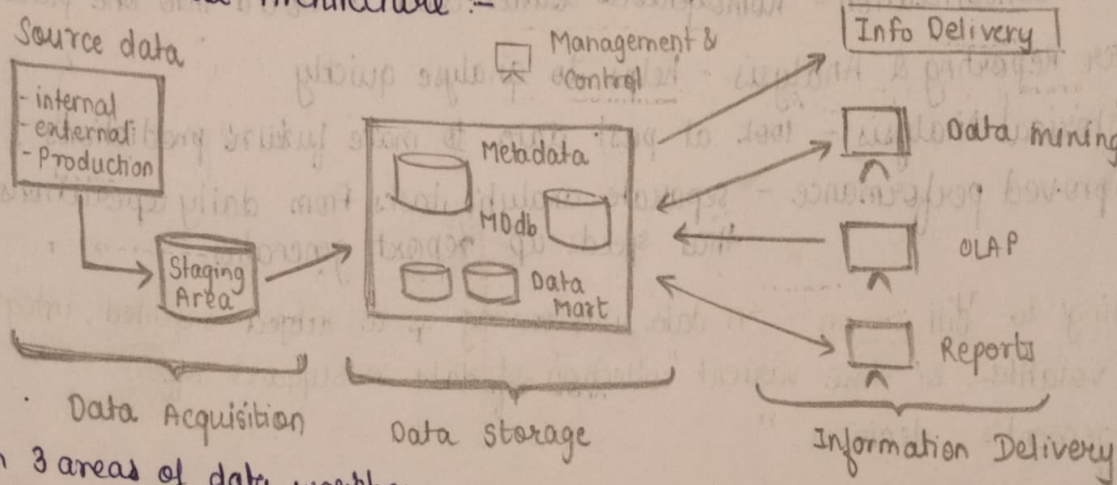 Architecture :-
Source data
- internal
- external
- Production
Staging
Area
Management &
Control
Metadata
MDdb
Data
Mart
Info Delivery
Data mining
OLAP
Reports
Data Acquisition
Data Storage
Information Delivery
3 areas of data